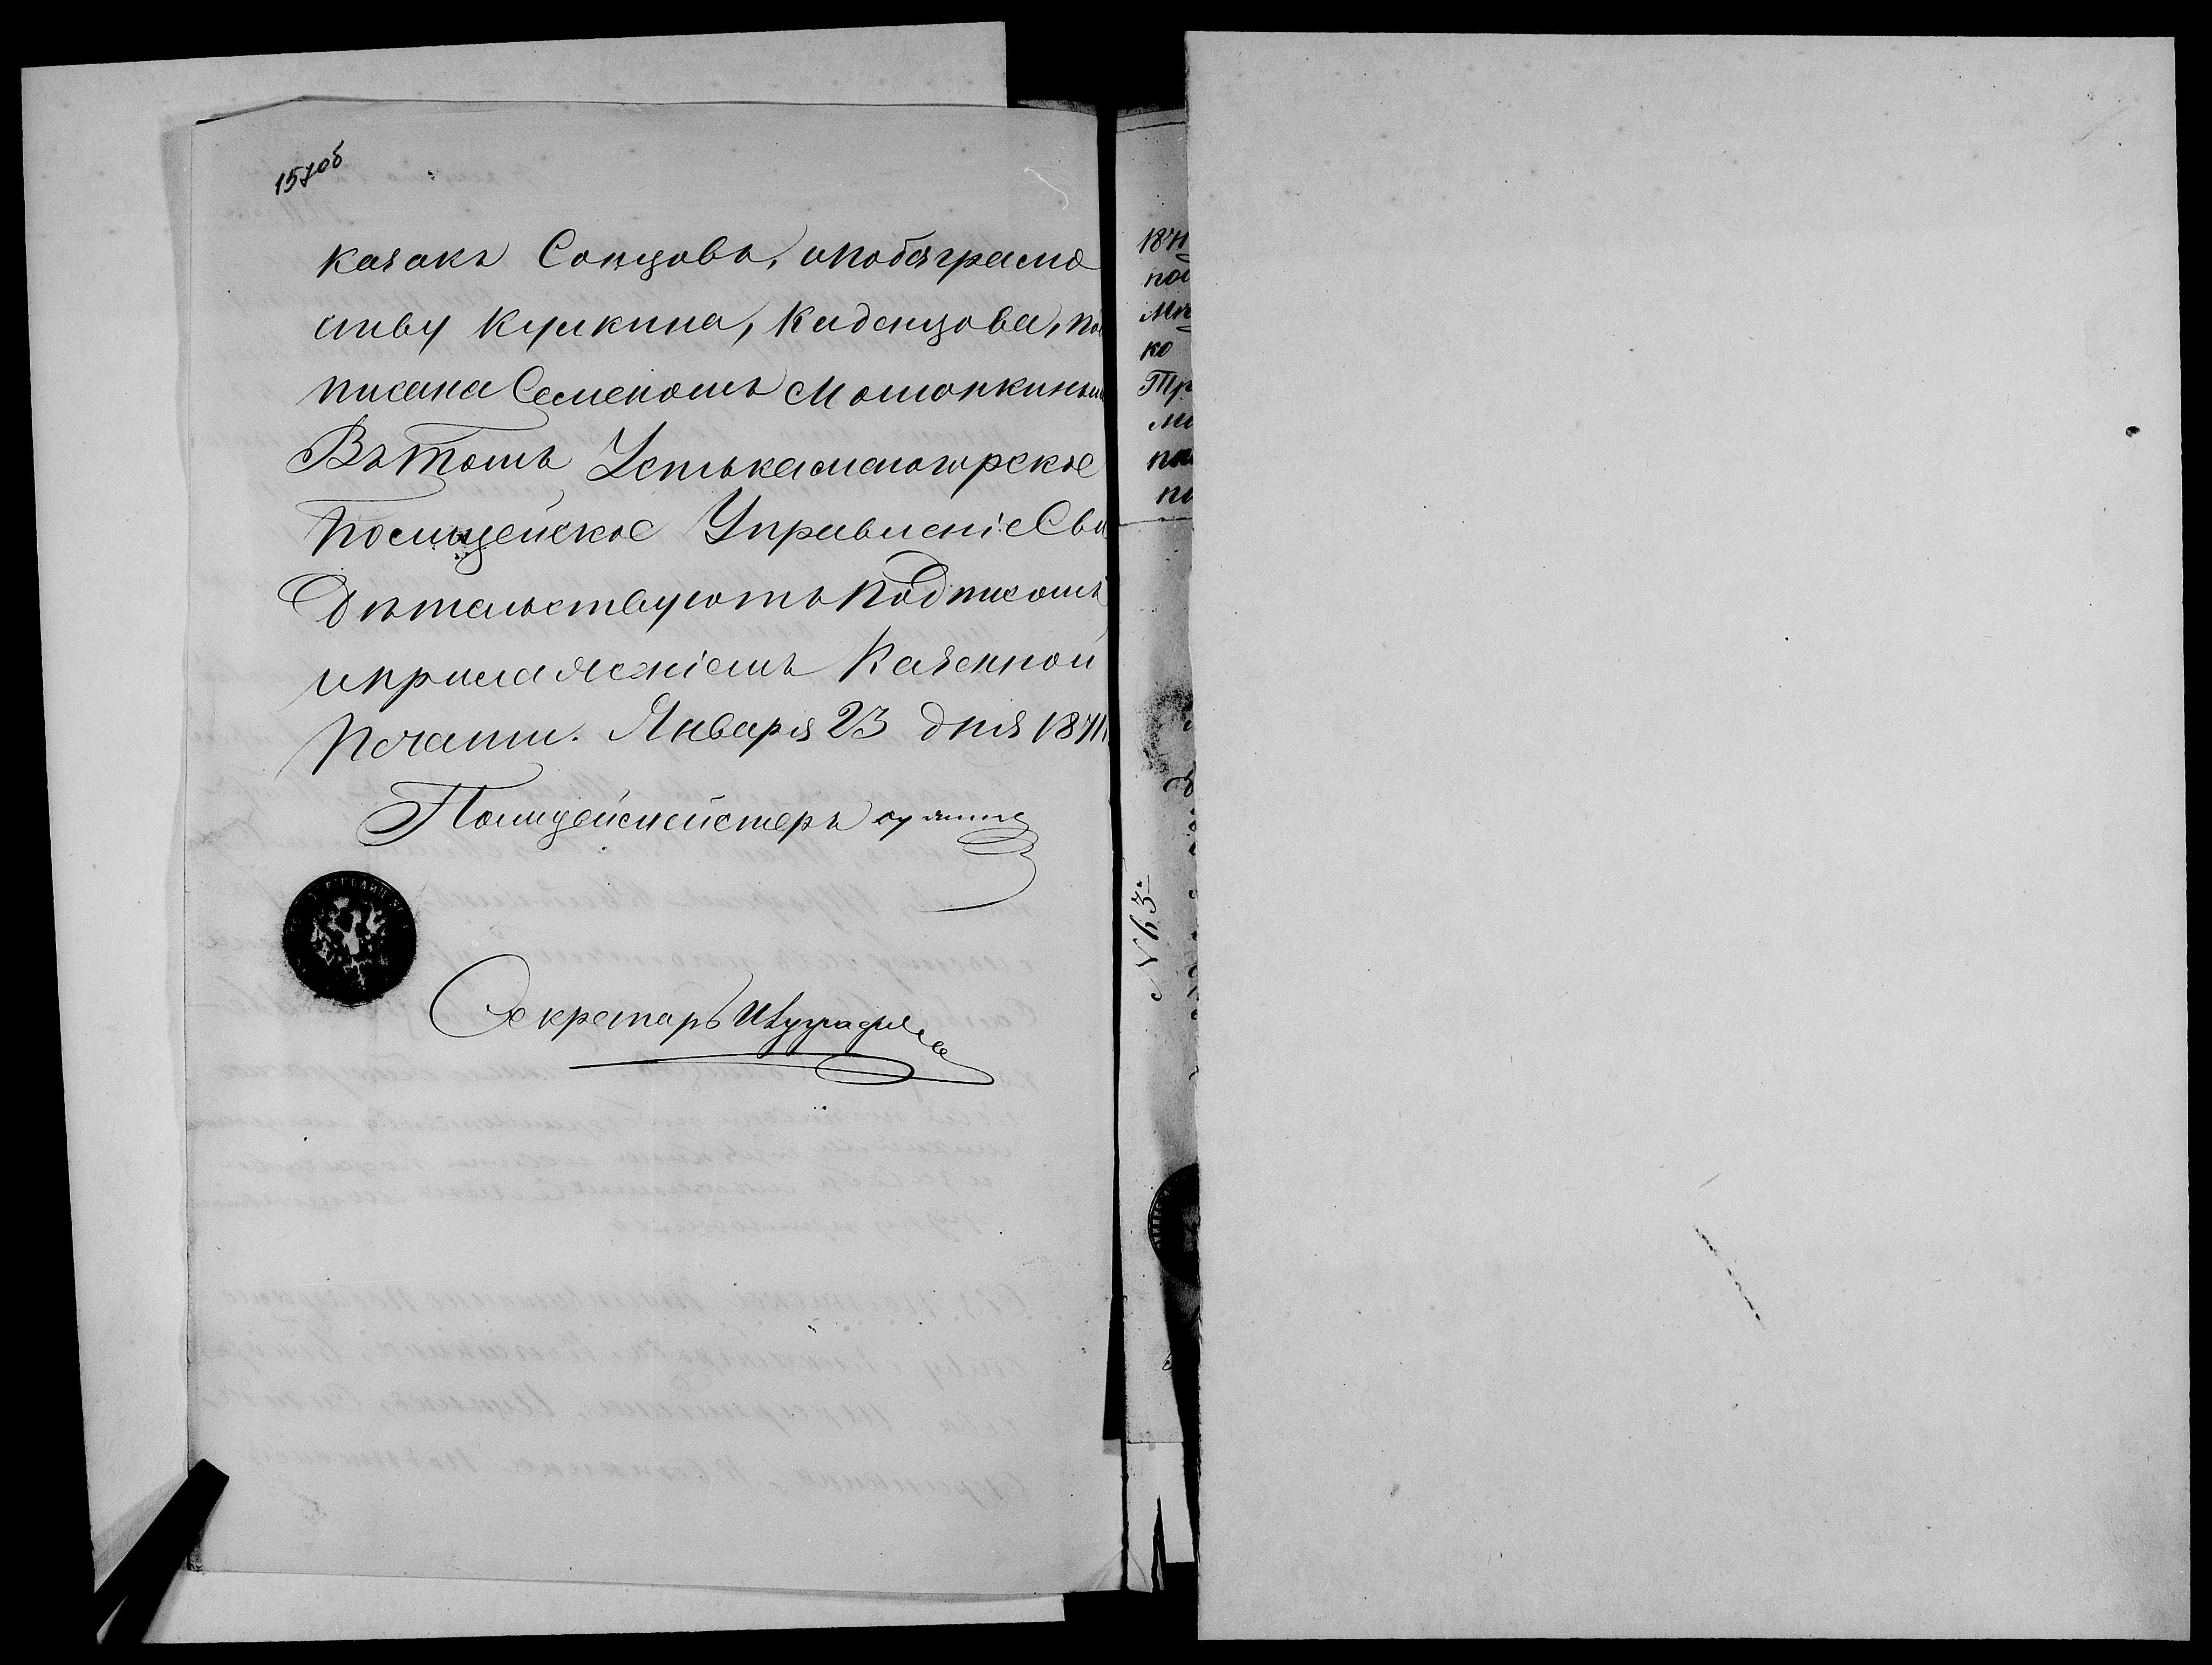 157об
казакъ Сонцовъ, и по безграмо
ству Кушкина, Каденцова, по
писана Семеномъ Мотонкинымъ
Въ томъ Устькаменогорское
Полицейское Управленіе Сви
дѣтельствуютъ подписомъ
и приложеніемъ Казенной
Печати. Января 23 дня 1871
Полицеймейстеръ
Секретарь
187
пол
ко
по
№ 3